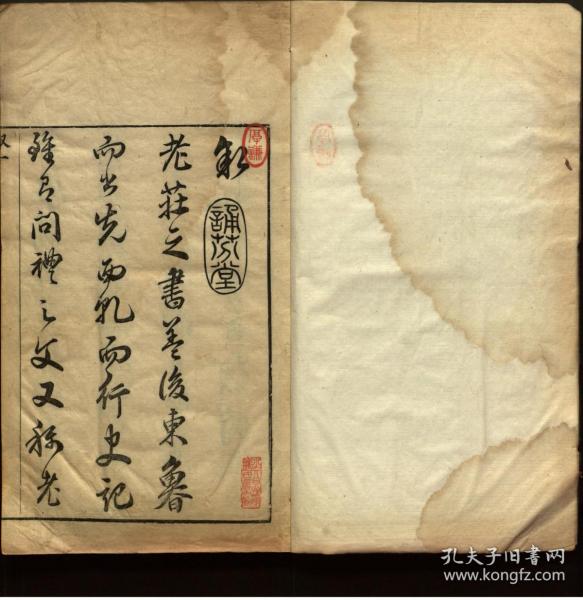 敘
誦芬堂
老莊之書蓋後東魯
而出先西乳而行史記
雖有問禮之文又稱老
叙一
孔夫子旧书网
www.kongfz.com